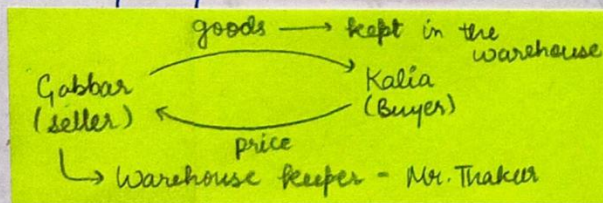 goods → kept in the
warehouse
Gabbar
(seller)
Kalia
(Buyer)
price
↳ Warehouse keeper - Mr. Thakur